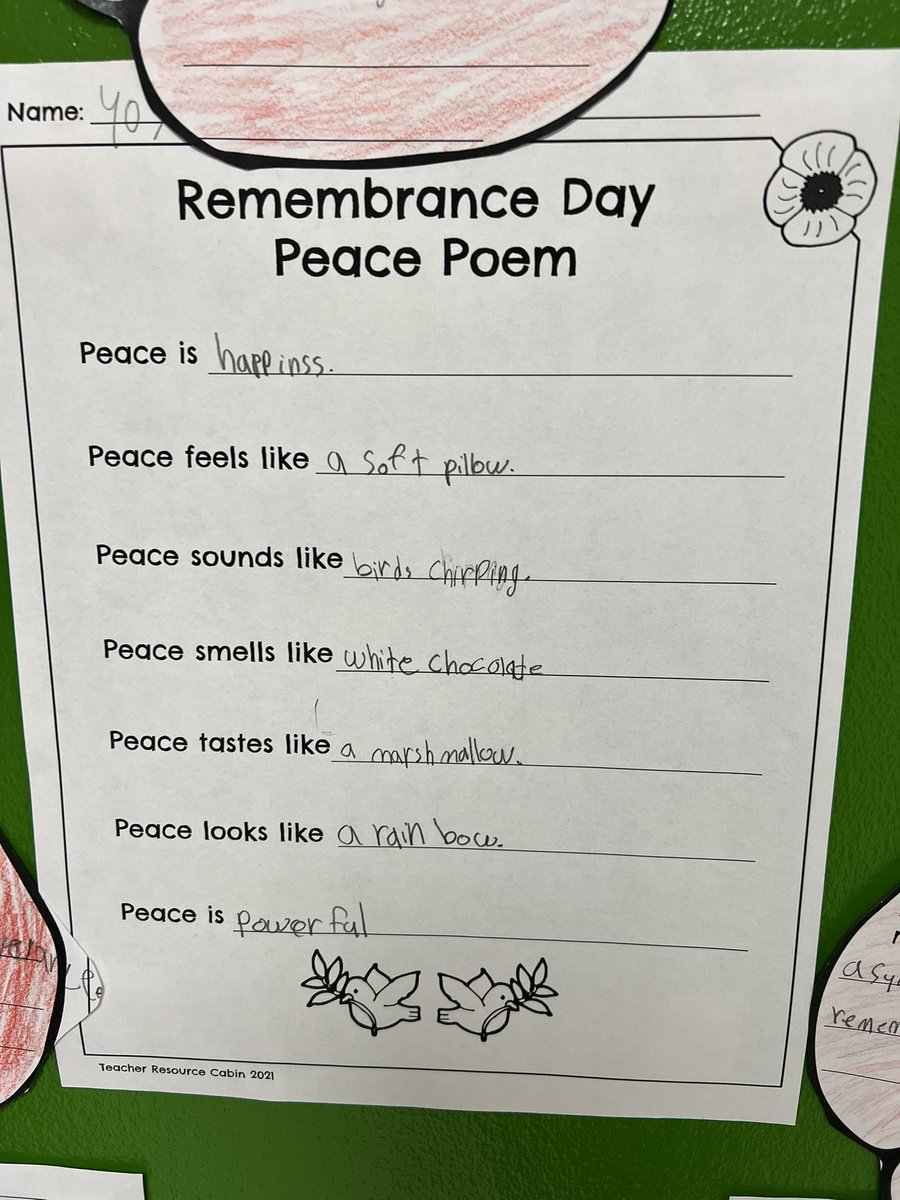 Name: Yo
Remembrance Day
Peace Poem
Peace is happinss.
Peace feels like a soft pillow.
Peace sounds like birds chirping.
Peace smells like white chocolate
Peace tastes like a marshmallow.
Peace looks like a rain bow.
Peace is powerful
Teacher Resource Cabin 2021